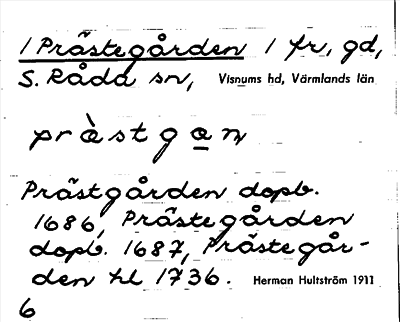 1 Prästegården 1 fr, gd,
S. Råda sn, Visnums hd, Värmlands län
pràstga̲n
Prästgården dopb.
1686, Prästegården
dopb. 1687, Prästegår-
den hl 1736. Herman Hultström 1911
6